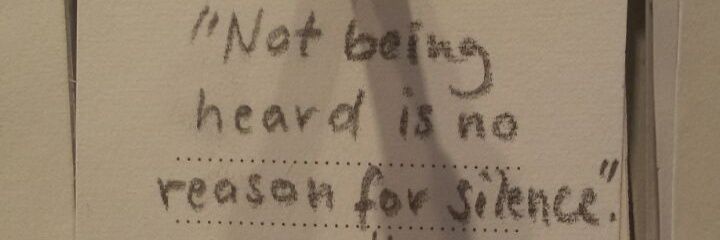 "Not being
heard is no
reason for silence".